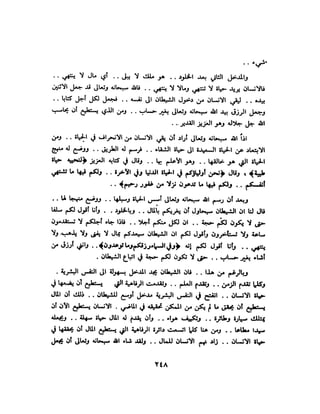 شيء » . .
والمدخل الثاني بعد الخلود . . هو ملك لا يبلى . . أي مال لا ينتهي . .
فالانسان يريد حياة لا تنتهي ومالا لا ينتهي . . فالله سبحانه وتعالى قد جعل الاثنين
بيده . . ليقي الانسان من دخول الشيطان الى نفسه . . فجعل لكل أجل كتابا . .
وجعل الرزق بيد الله سبحانه وتعالى بغير حساب . . ومن الذي يستطيع أن يحاسب
الله جل جلاله وهو العزيز القدير . .
اذاً الله سبحانه وتعالى أراد أن يقي الانسان من الانحراف في الحياة . . ومن
الابتعاد عن الحياة السعيدة الى حياة الشقاء . . فرسم له الطريق . . ووضع له منهج
الحياة التي هو خالقها . . وهو الأعلم بها . . وقال في كتابه العزيز ﴿لنحيينه حياة
طيبة﴾ ، وقال ﴿نحن أولياؤكم في الحياة الدنيا وفي الآخرة . . ولكم فيها ما تشتهي
أنفسكم . . ولكم فيها ما تدعون نزلا من غفور رحيم﴾ . .
وبعد أن رسم الله سبحانه وتعالى أسس الحياة وسبلها . . ووضع منهجا لها . .
قال لنا إن الشيطان سيحاول أن يغريكم بالمال . . وبالخلود . . وأنا أقول لكم سلفا
حتى لا يكون لكم حجة . . ان لكل منكم أجلا . . فاذا جاء أجلكم لا تستقدمون
ساعة ولا تستأخرون وأقول لكم ان الشيطان سيعدكم بمال لا يفنى ولا يذهب ولا
ينتهي . . وأنا أقول لكم إنه ﴿وفي السماء رزقكم وما توعدون﴾ . . وانني أرزق من
أشاء بغير حساب . . حتى لا تكون لكم حجة في اتباع الشيطان .
وبالرغم من هذا . . فان الشيطان يجد المدخل بسهولة الى النفس البشرية .
وكلما تقدم الزمن . . وتقدم العلم . . وتقدمت الرفاهية التي يستطيع أن يضعها في
حياة الانسان . . انفتح في النفس البشرية مدخل أوسع للشيطان . . ذلك أن المال
يستطيع أن يحقق ما لم يكن من الممكن تحقيقه في الماضي . الانسان يستطيع الآن أن
يمتلك سيارة وطائرة . . وتكييف هواء . . وأن يقدم له المال حياة سهلة . . ويجعله
سيدا مطاعا . . ومن هنا كلما اتسعت دائرة الرفاهية التي يستطيع المال أن يحققها في
حياة الانسان . . زاد نهم الانسان للمال . . ولقد شاء الله سبحانه وتعالى أن يجعل
٢٤٨